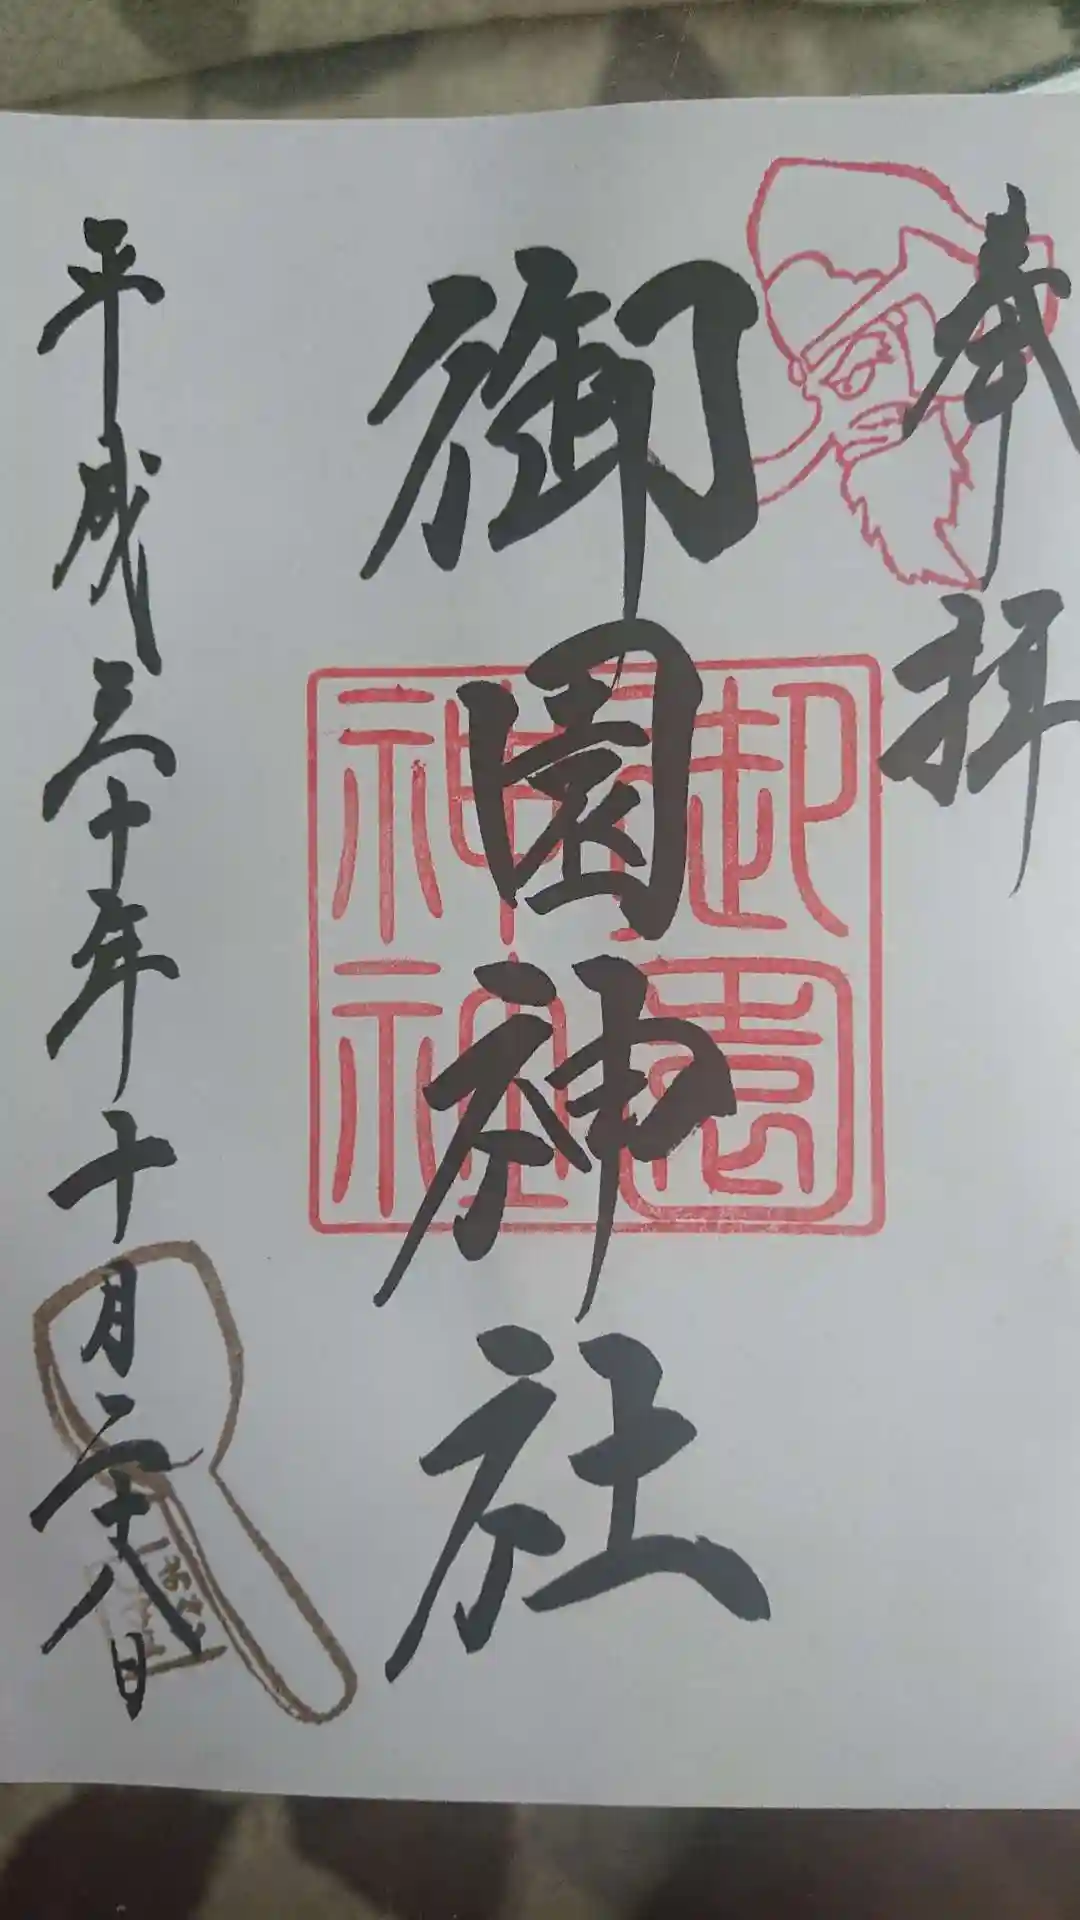 奉拝
御園神社
御園
神社
平成三十年十月二十八日